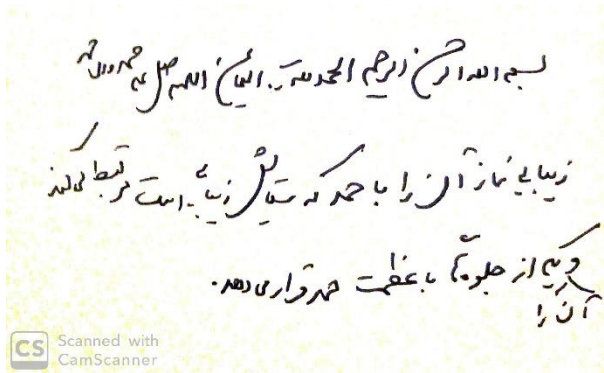 بسم الله الرحمن الرحیم الحمد لله رب العالمین اللهم صل علی محمد و آل محمد
زیبایی نماز آن را با حمد که ستایش زیبایی است مرتبط می‌کند
و یکی از جلوه‌های با عظمت حمد قرار می‌دهد.
آن را
CS Scanned with
CamScanner